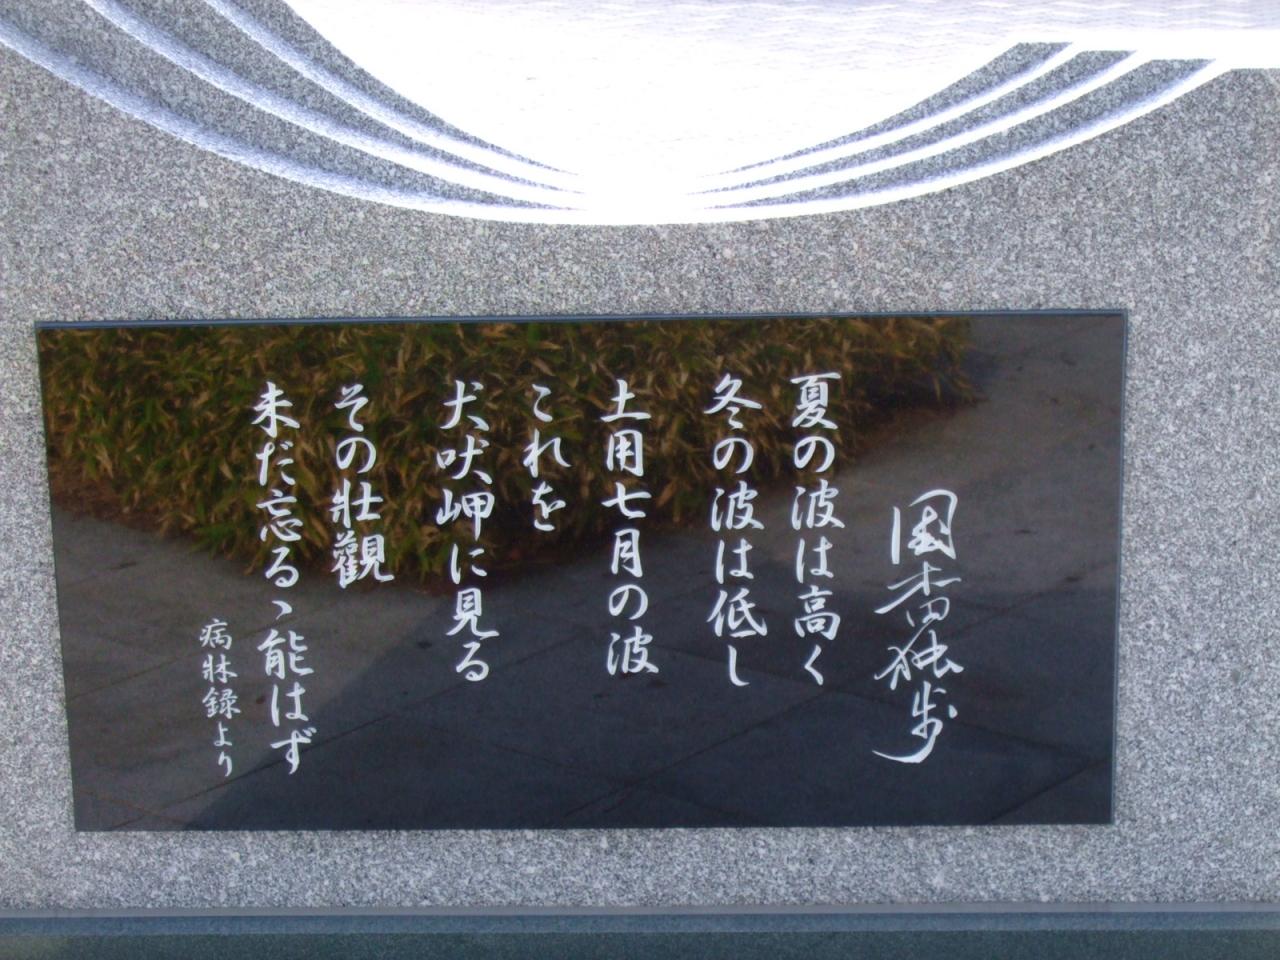 国木田独歩
夏の波は高く
冬の波は低し
土用七月の波
これを
犬吠岬に見る
その壯觀
未だ忘るゝ能はず
病牀録より